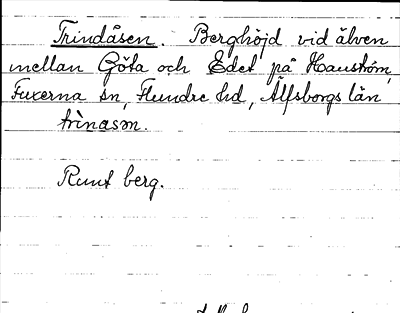 Trindåsen. Berghöjd vid älven
mellan Göta och Edet på Hanström,
Fuxerna sn, Flundre hd, Älfsborgs län
trìnasən.
Runt berg.